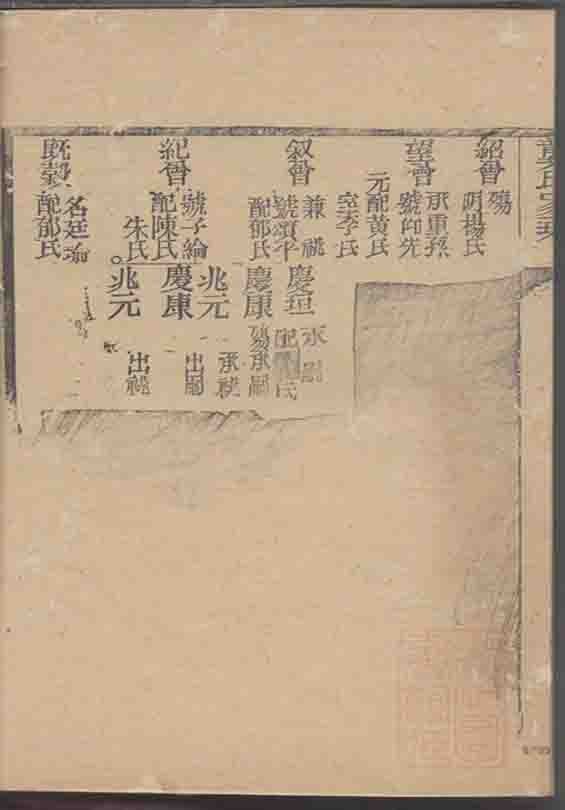 紹曾
殤
聘楊氏
望曾
承重孫
號仰先
元配黃氏
室李氏
叙曾
兼祧
號頌平
配郁氏
慶垣
承嗣
氏
慶康
殤承嗣
紀曾
號子綸
配陳氏
朱氏
兆元
承祧
慶康
出嗣
兆元
出祧
名廷瑜
配郁氏